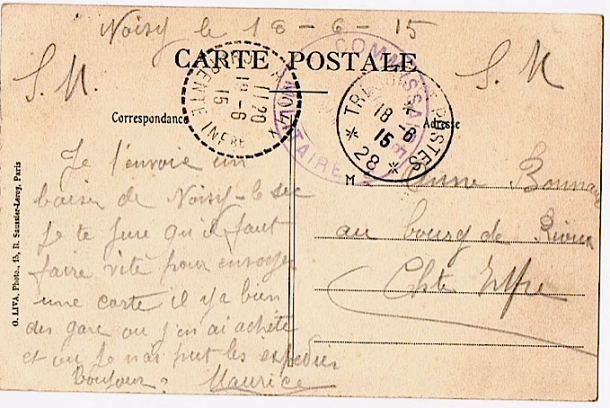 Noisy le 18-6-15
CARTE POSTALE
S. M. S. M.
Correspondance Adresse
COMMISSAIRE MILITAIRE
11 20
18 -6
15
CHARENTE INFRE
TRESOR ET POSTES
18 -6
15
* 28 *
M
Je t'envoie un
baiser de Noisy-le sec
Je te jure qu'il faut
faire vite pour envoyer
une carte il y a bien
des gare ou j'en ai acheté
et ou Je n'ai put les expedier
Bonjour Maurice
au bourg de Rioux
Chte Infre
O. LIVA, Photo., 15, R. Saussier-Leroy, Paris